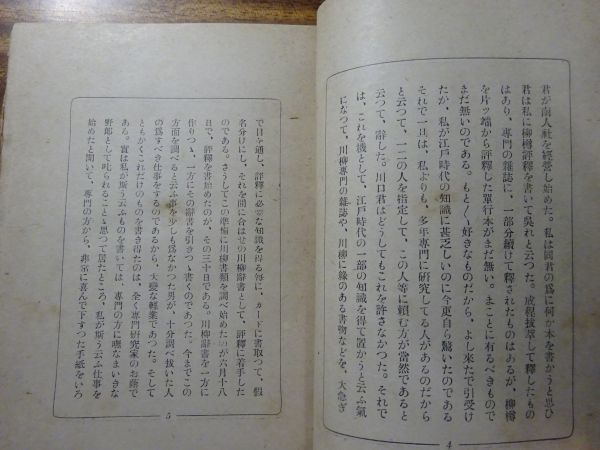 君が商人社を經營し始めた。私は岡君の爲に何か本を書かうと思ひ
君は私に柳樽評釋を書いて吳れと云つた。成程拔萃して釋したもの
はあり、專門の雜誌に、一部分續けて釋されたものはあるが、柳樽
を片ッ端から評釋した單行本がまだ無い。まことに有るべきもので
まだ無いのである。もと〱好きなものだから、よし來たで引受け
たが、私が江戸時代の知識に甚乏しいのに今更自ら驚いたのである
それで一旦は、私よりも、多年專門に硏究してる人があるのだから
と云つて、一二の人を指定して、この人等に賴む方が當然であると
云つて、辭した。川口君はどうしてもこれを許さなかつた。それで
は、これを機として、江戸時代の一部の知識を得て置かうと云ふ氣
になつて、川柳專門の雜誌や、川柳に緣のある書物などを、大急ぎ
4
で目を通し、評釋に必要な知識を得る每に、カードに書取つて、假
名分けにし、それを間に合はせの川柳辭書として、評釋に着手した
のである。さうしてこの準備に川柳書類を調べ始めたのが六月十八
日で、評釋を書始めたのが、その三十日である。川柳辭書を一方に
作りつゝ、一方にその辭書を引きつゝ書くのであつた。今までこの
方面を調べると云ふ事を少しも爲なかつた男が、十年調べ拔いた人
の爲すべき仕事をするのであるから、大變な輕業であつた。そして
ともかくこれだけのものを書き得たのは、全く專門硏究家のお蔭で
ある。實は私が斯う云ふものを書いては、專門の方に嘸なまいきな
野郞として叱られることゝ思つて居たところ、私が斯う云ふ仕事を
始めたと聞いて、專門の方から、非常に喜んで下すつた手紙をいろ
5